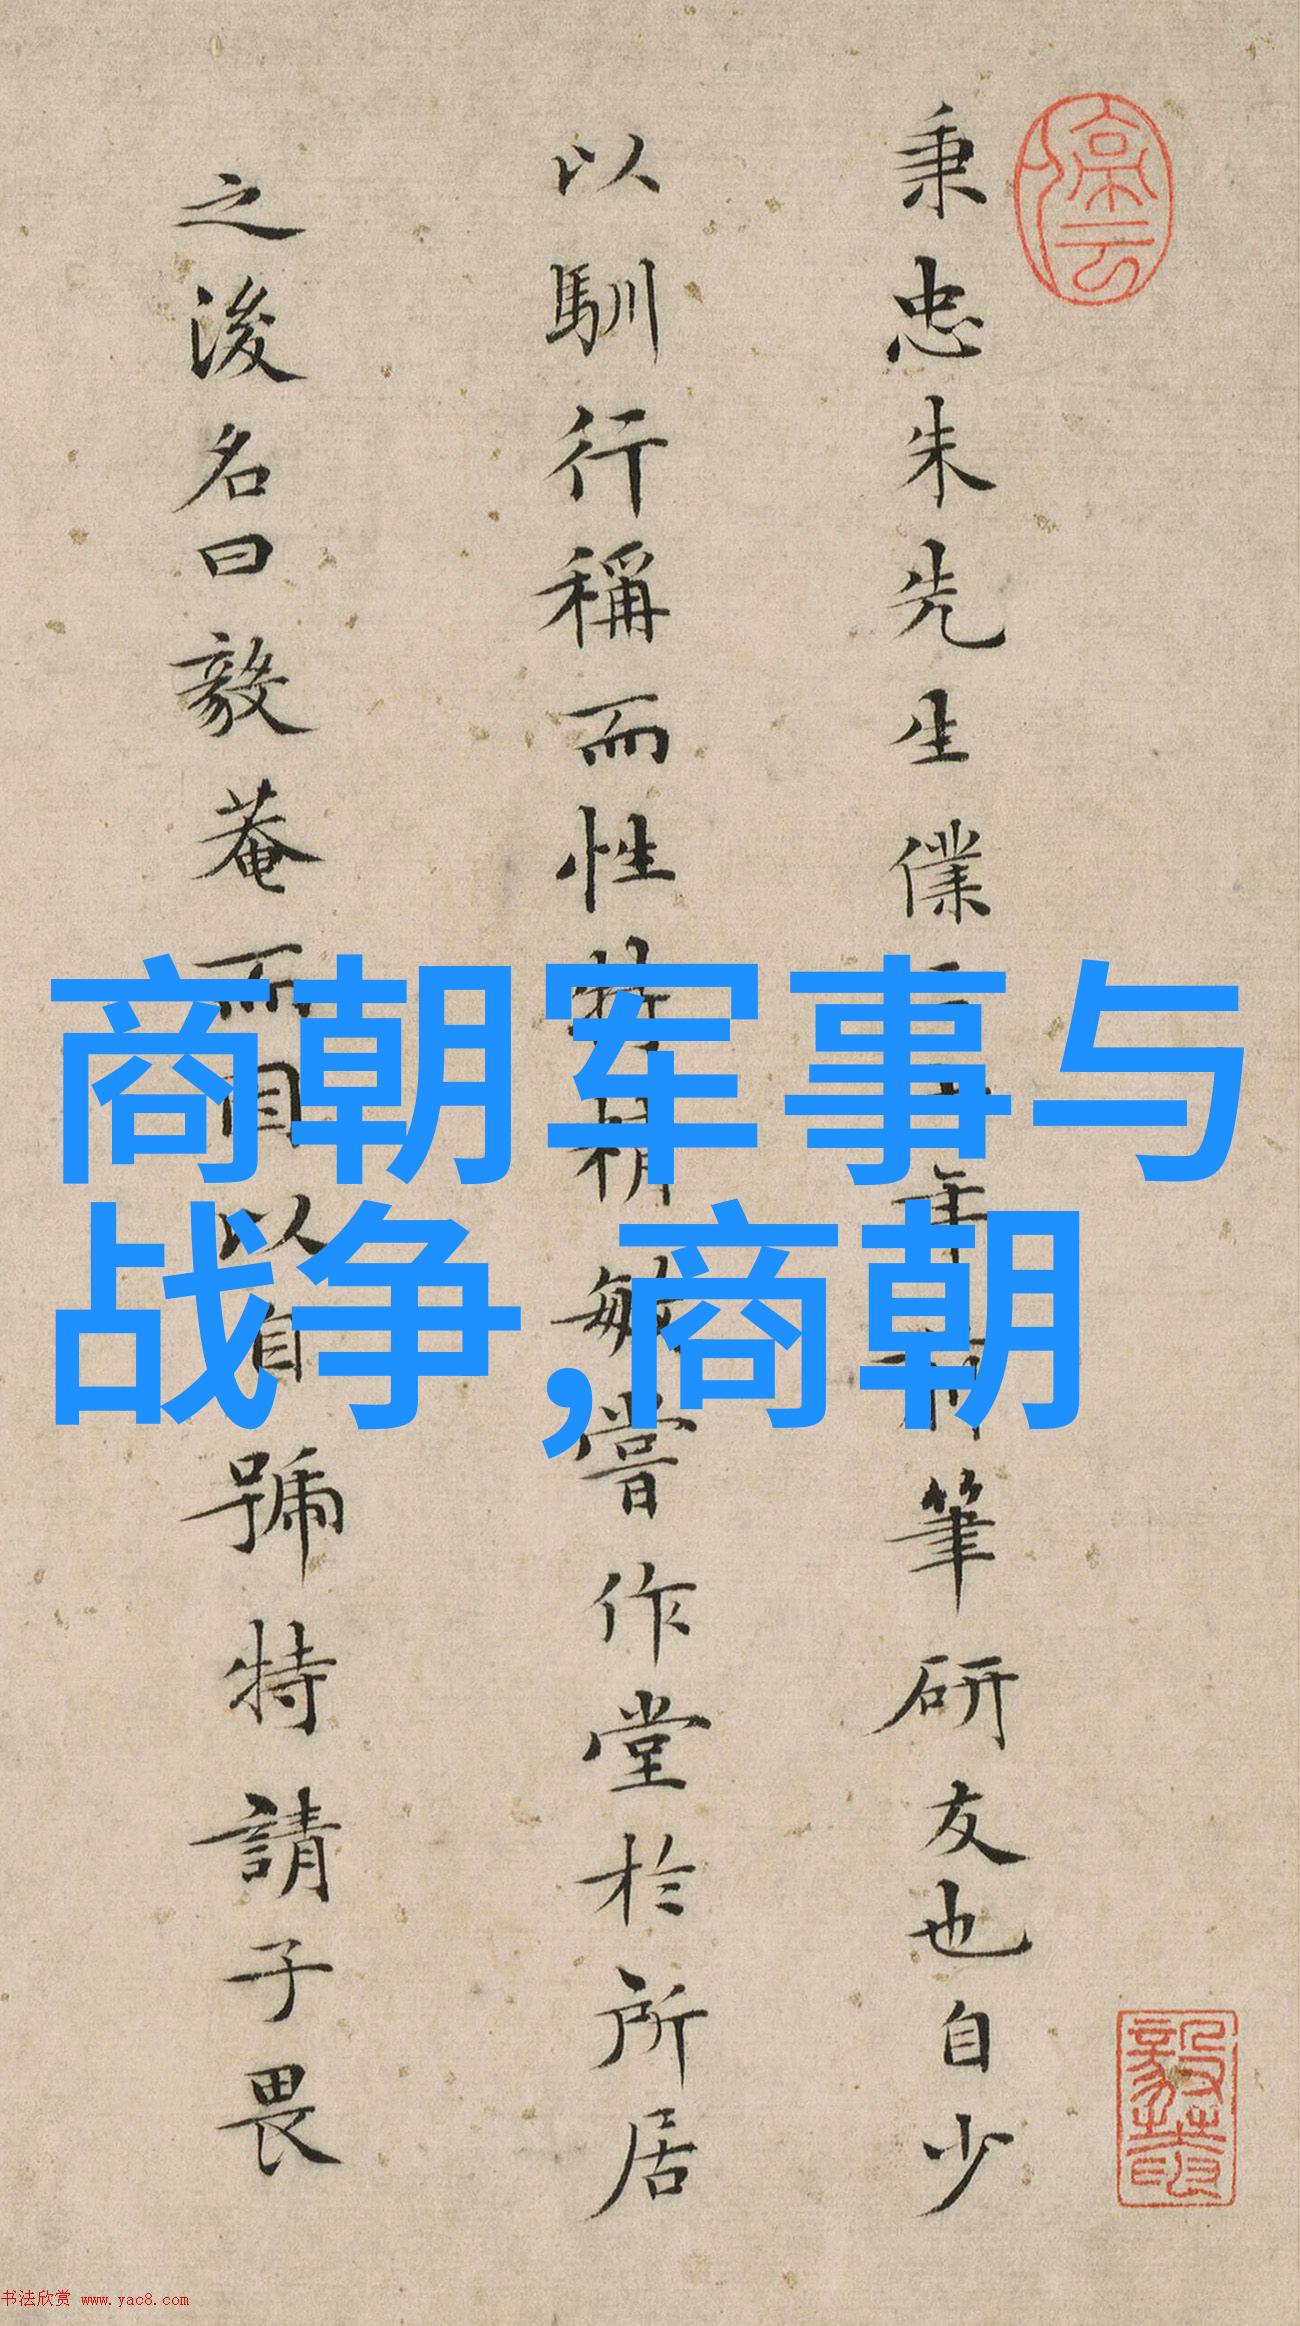 秉忠朱先生僕年筆研友也自少
以馴行稱而性特精敏嘗作堂於所居
之後名曰毅菴而因以自號特請子畏
商朝军事与
战争,商朝
书法欣赏 www.yac8.com